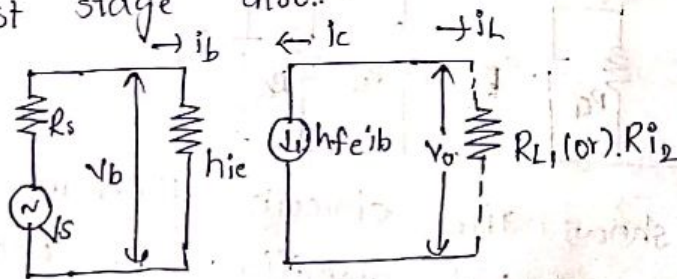 stage
→ ib
← ic
→ iL
Rs
Vb
hie
hfe ib
Vo
RL, (or). Ri2
Vs